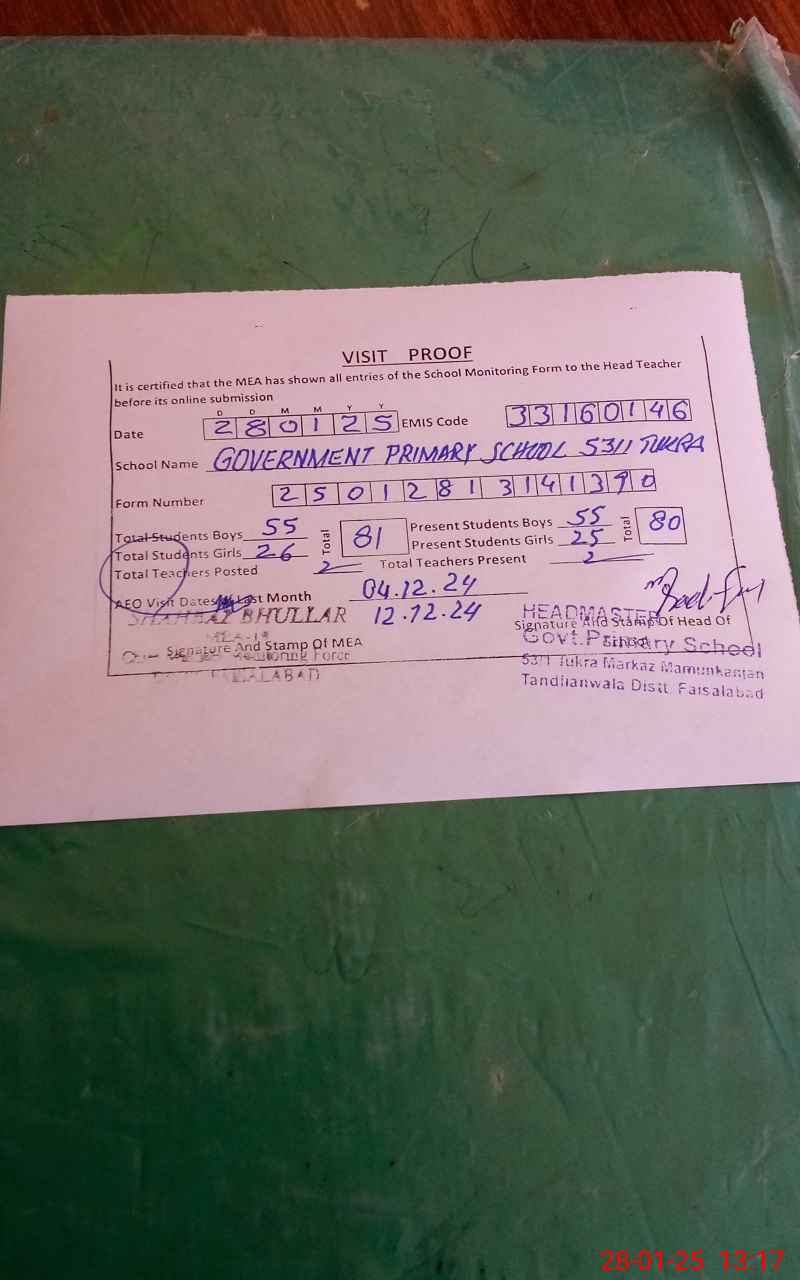 VISIT PROOF
It is certified that the MEA has shown all entries of the School Monitoring Form to the Head Teacher
before its online submission
D D M M Y Y
Date 280125 EMIS Code 33160146
School Name GOVERNMENT PRIMARY SCHOOL 53/1 TUKRA
Form Number 25012813141390
Total Students Boys 55 Total 81 Present Students Boys 55 Total 80
Total Students Girls 26 Present Students Girls 25
Total Teachers Posted 2 Total Teachers Present 2
AEO Visit Dates Last Month 04.12.24
12.12.24
BHULLAR
Signature And Stamp Of MEA
Monitoring Force
FAISALABAD
HEADMASTER
Signature And Stamp Of Head Of
School
Govt. Primary School
53/1 Tukra Markaz Mamunkanjan
Tandlianwala Distt. Faisalabad
28-01-25 13:17